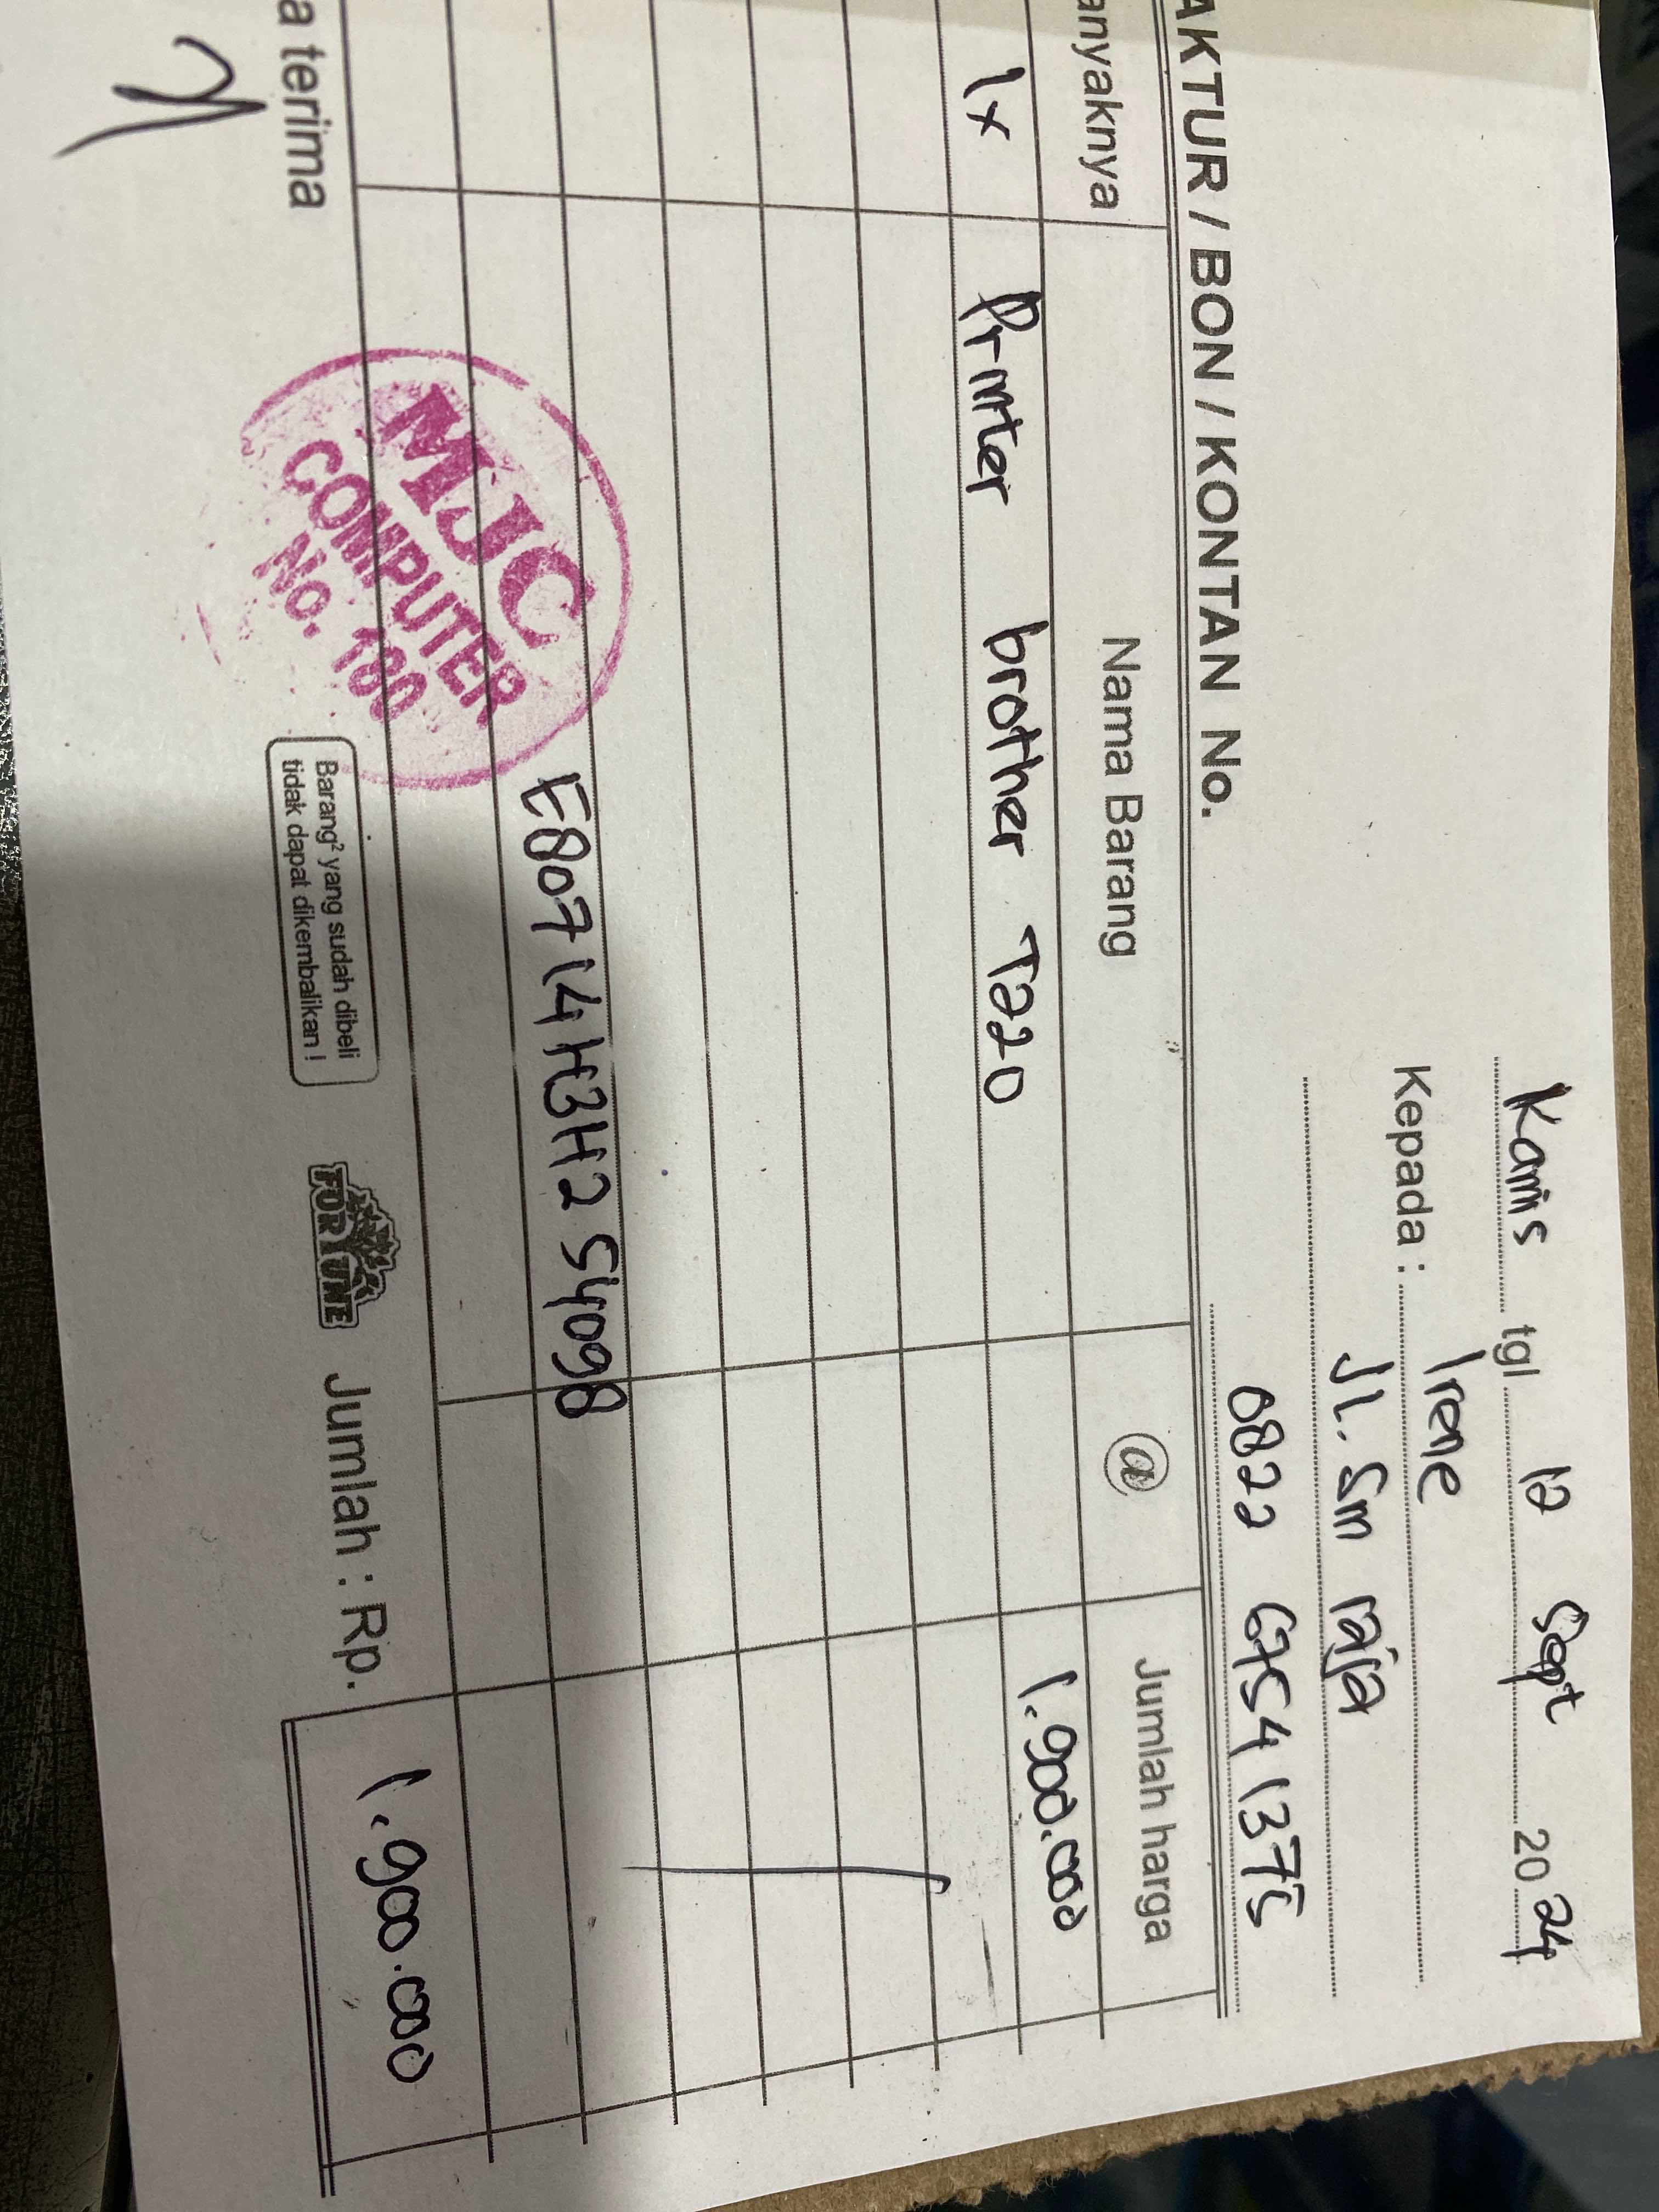 Kamis tgl. 12 Sept 2024
Kepada : Irene
Jl. Sm raja
AKTUR / BON / KONTAN No.
0822 6754 1375
anyaknya Nama Barang @ Jumlah harga
1x Printer brother T220 1.900.000
E80714H3H254098
MJC
COMPUTER
No. 180
a terima
Barang² yang sudah dibeli
tidak dapat dikembalikan !
FORTUNE
Jumlah : Rp. 1.900.000